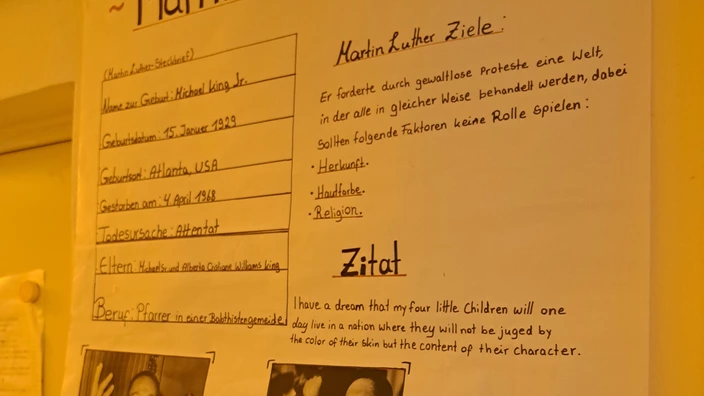 (Martin Luther-Steckbrief)
Name zur Geburt: Michael King Jr.
Geburtsdatum: 15. Januar 1929
Geburtsort: Atlanta, USA
Gestorben am: 4 April 1968
Todesursache: Attentat
Eltern: Michael Sr. und Alberta Cristiane Williams King
Beruf: Pfarrer in einer Babthistengemeide
Martin Luther Ziele:
Er forderte durch gewaltlose Proteste eine Welt,
in der alle in gleicher Weise behandelt werden, dabei
sollten folgende Faktoren keine Rolle spielen:
• Herkunft.
• Hautfarbe.
• Religion.
Zitat
I have a dream that my four little Children will one
day live in a nation where they will not be juged by
the color of their skin but the content of their character.